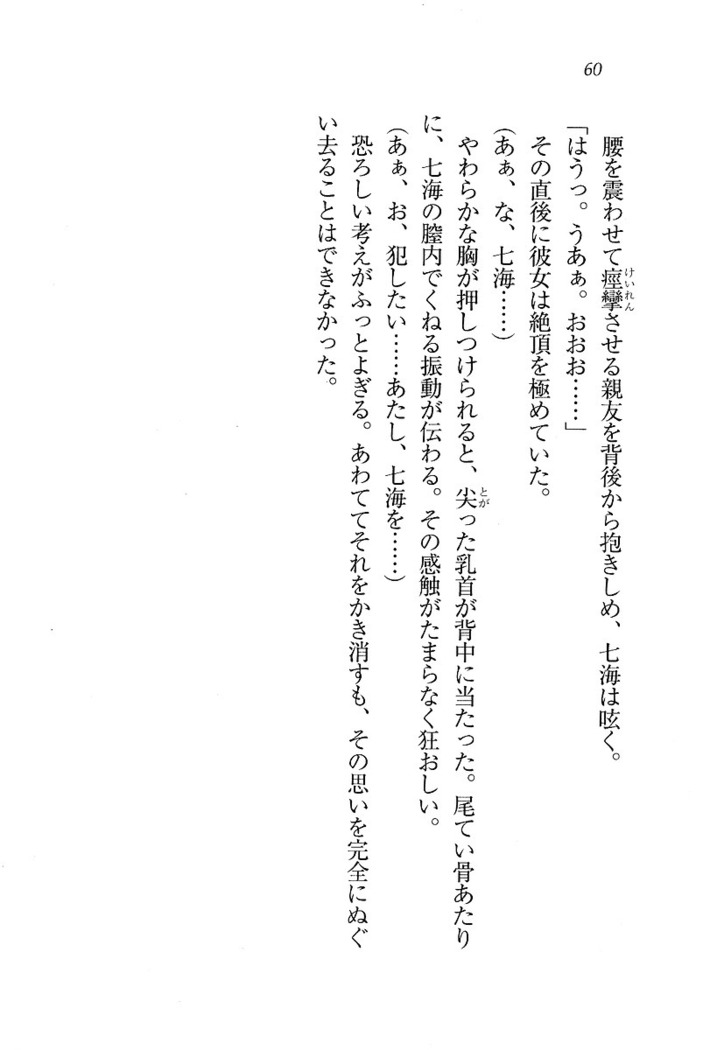 60
腰を震わせて痙攣させる親友を背後から抱きしめ、七海は呟く。
けいれん
「はうっ。うあぁ。おおお……」
その直後に彼女は絶頂を極めていた。
(あぁ、な、七海……)
やわらかな胸が押しつけられると、尖った乳首が背中に当たった。尾てい骨あたり
とが
に、七海の膣内でくねる振動が伝わる。その感触がたまらなく狂おしい。
(あぁ、お、犯したい……あたし、七海を……)
恐ろしい考えがふっとよぎる。あわててそれをかき消すも、その思いを完全にぬぐ
い去ることはできなかった。